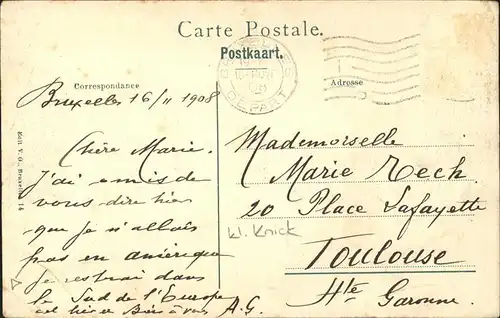 Carte Postale.
Postkaart.
Correspondance
Adresse
BRUXELLES
DEPART
Bruxelles 16/11 1908
Chère Marie.
J'ai omis de
vous dire hier
que je n'allais
pas en amérique
je restrai dans
le Sud de l'Europe
et
A.G.
Mademoiselle
Marie Tech
20 Place Lafayette
kl. Knick
Toulouse
Hte Garonne.
Edit. V. G., Bruxelles 14